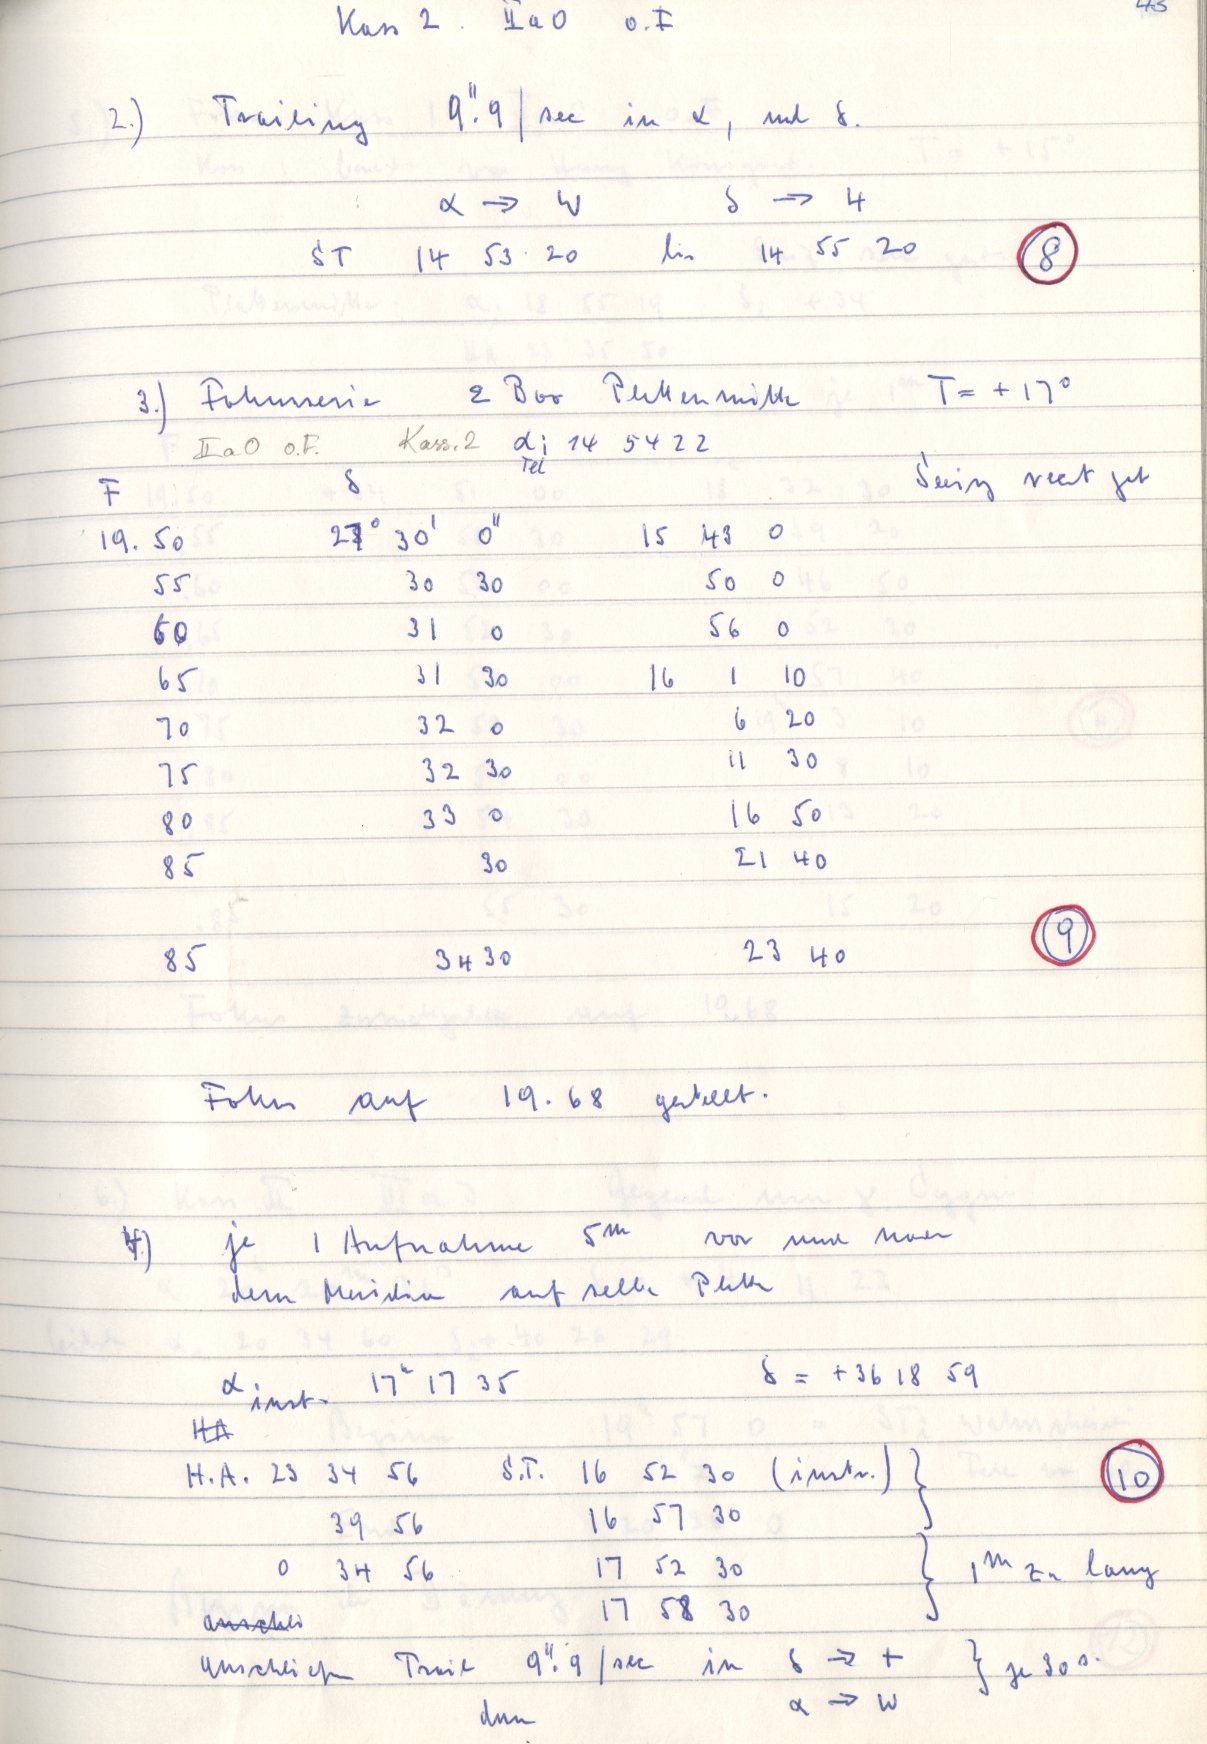 43
Kass 2. IIaO o.F
2.) Trailing 9".9/sec in α, und δ.
α → W δ → 4
ST 14 53 20 bis 14 55 20 8
3.) Fokusserie ε Boo Plattenmitte T = +17°
IIaO o.F. Kass. 2 α: 14 54 22
Tel
F δ Seeing recht gut
19.50 27° 30' 0" 15 43 0
55 30 30 50 0
60 31 0 56 0
65 31 30 16 1 10
70 32 0 6 20
75 32 30 11 30
80 33 0 16 50
85 30 21 40
85 34 30 23 40 9
Fokus auf 19.68 gestellt.
4.) je 1 Aufnahme 5m vor und nach
dem Meridian auf selbe Platte
α inst. 17h 17 35 δ = +36 18 59
HA
H.A. 23 34 56 S.T. 16 52 30 (instr.) 10
39 56 16 57 30
0 34 56 17 52 30 1m zu lang
17 58 30
anschließ Trail 9".9/sec in δ → + je 30 s.
dann α → W